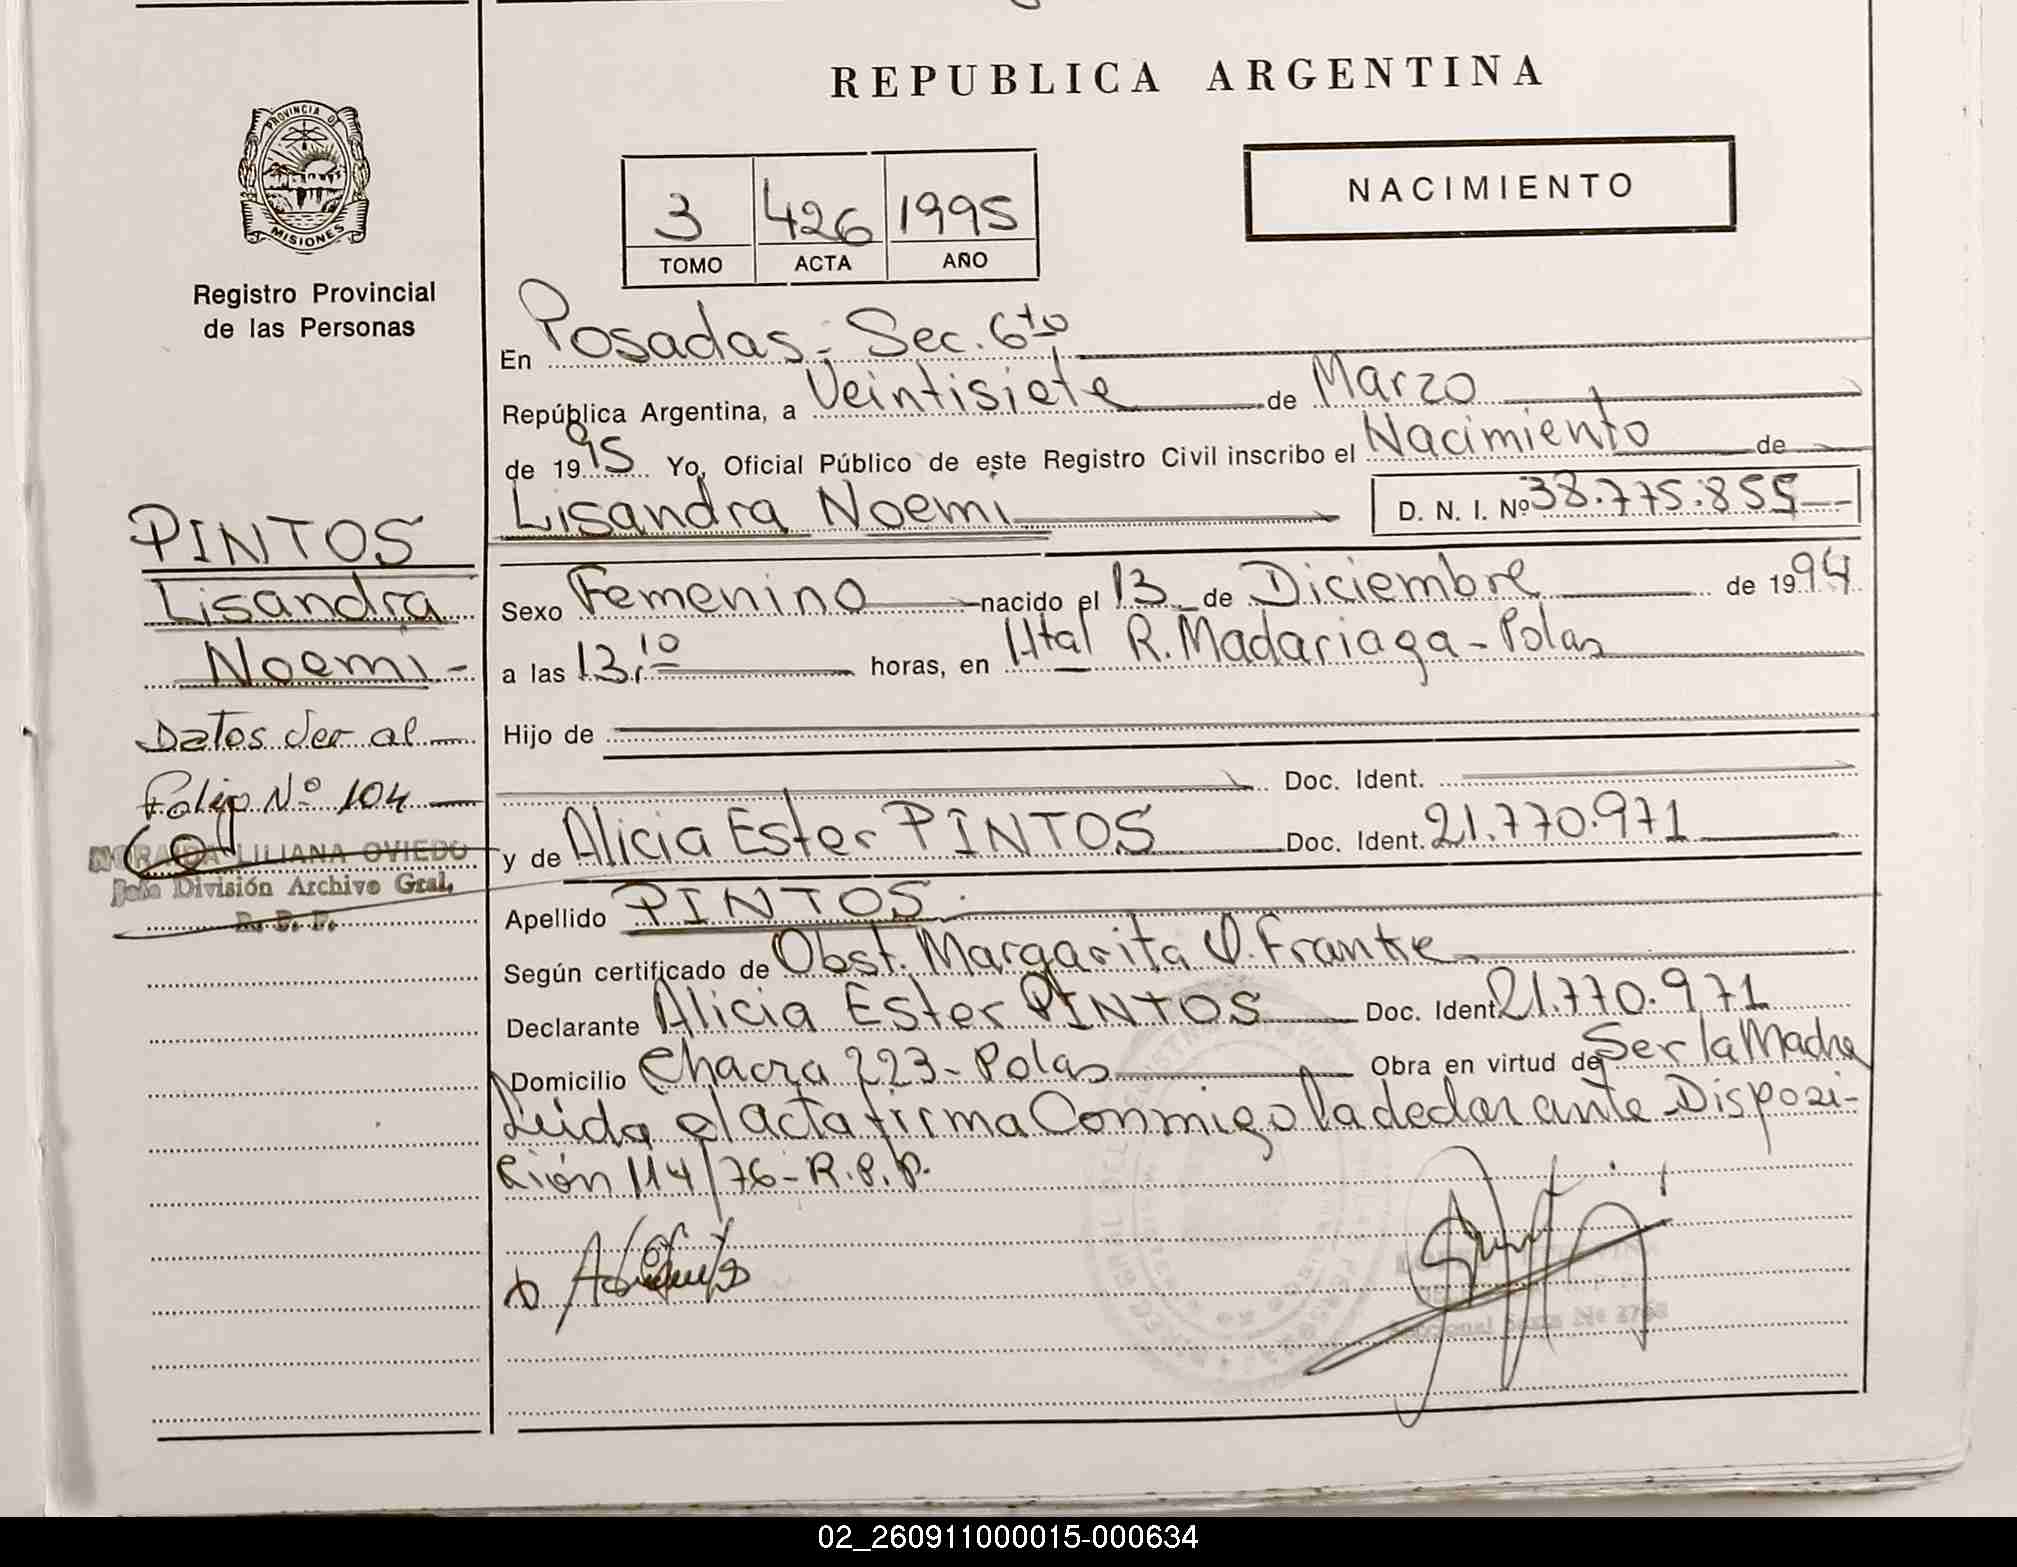 REPUBLICA ARGENTINA
PROVINCIA D
MISIONES
Registro Provincial
de las Personas
3 426 1995
TOMO ACTA AÑO
NACIMIENTO
En Posadas - Sec. 6to
República Argentina, a Veintisiete de Marzo
de 1995 Yo, Oficial Público de este Registro Civil inscribo el Nacimiento de
Lisandra Noemi D. N. I. Nº 38.775.855
Sexo Femenino nacido el 13 de Diciembre de 1994
a las 13,10 horas, en Htal R. Madariaga - Pdas
Hijo de
Doc. Ident.
y de Alicia Ester PINTOS Doc. Ident. 21.770.971
Apellido PINTOS
Según certificado de Obst. Margarita V. Franke
Declarante Alicia Ester PINTOS Doc. Ident 21.770.971
Domicilio Chacra 223 - Pdas Obra en virtud de Ser la Madre
Leida el acta firma Conmigo la declarante - Disposi-
ción 114/76 - R.P.P.
PINTOS
Lisandra
Noemi -
Datos ver al
Folio Nº 104
LILIANA OVIEDO
Jefe División Archivo Gral.
R. P. P.
02_260911000015-000634